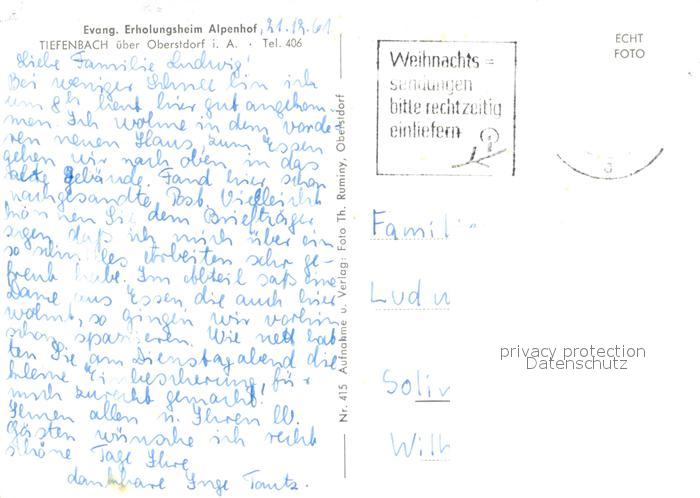 Evang. Erholungsheim Alpenhof, 21.12.61
TIEFENBACH über Oberstdorf i. A. · Tel. 406
Liebe Familie Ludwig!
Bei weniger Schnee bin ich
um 8h heut hier gut angekom-
men. Ich wohne in dem vorde-
ren neuen Haus, zum Essen
gehen wir nach oben in das
alte Gebäude. Fand hier schon
nachgesandte Post. Vielleicht
können Sie dem Briefträger
sagen, daß ich mich über ein
so schnelles Arbeiten sehr ge-
freut habe. Im Abteil saß eine
Dame aus Essen die auch hier
wohnt, so gingen wir vorhin
schon spazieren. Wie nett hat-
ten Sie am Dienstagabend die
kleine Einbescherung für
mich zurecht gemacht.
Ihnen allen u. Ihren W.
Gästen wünsche ich recht
schöne Tage Ihre
dankbare Inge Tautz.
Nr. 415 Aufnahme u. Verlag: Foto Th. Ruminy, Oberstdorf
Weihnachts=
sendungen
bitte rechtzeitig
einliefern
a
ECHT
FOTO
Famili
Ludw
Solin
Wilh
privacy protection
Datenschutz